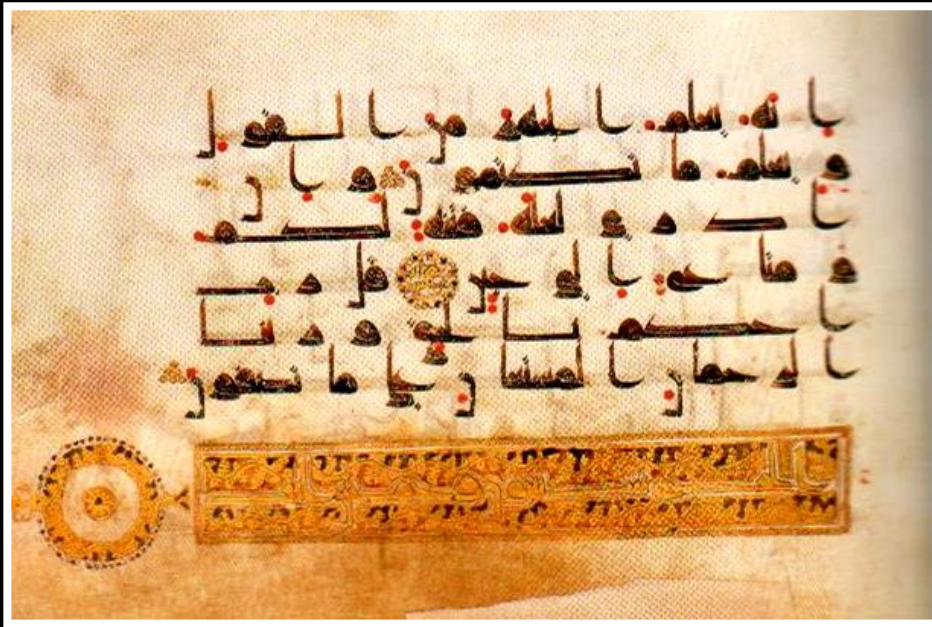 انه يعلم الجهر من القول
و يعلم ما تكتمون و ان
ادري لعله فتنة لكم
و متاع الى حين قل رب
احكم بالحق و ربنا
الرحمن المستعان على ما تصفون